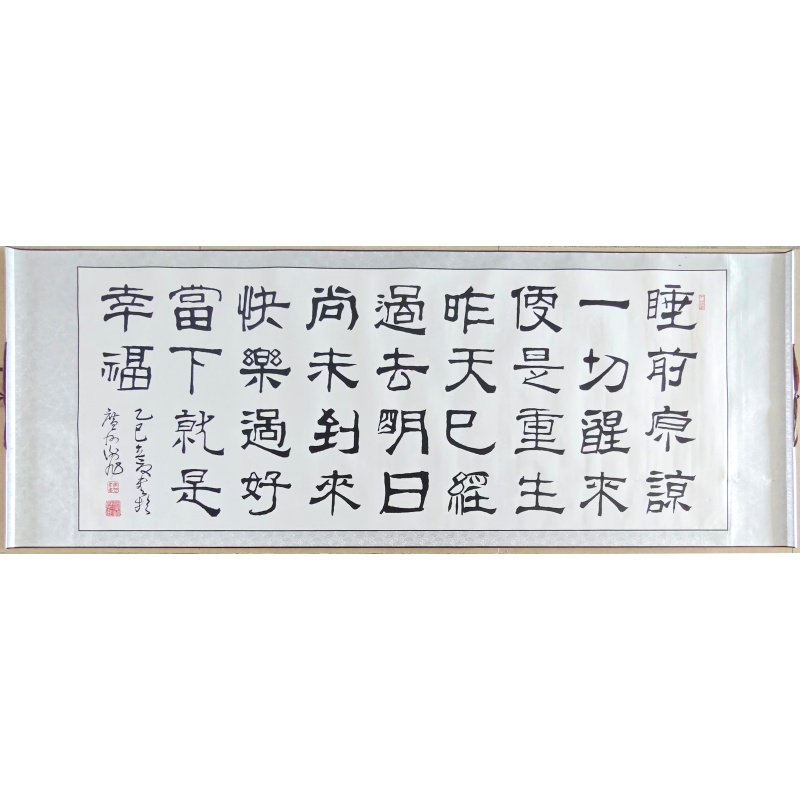 睡前原諒
一切醒來
便是重生
昨天已經
過去明日
尚未到來
快樂過好
當下就是
幸福
乙巳立夏書於
廣州